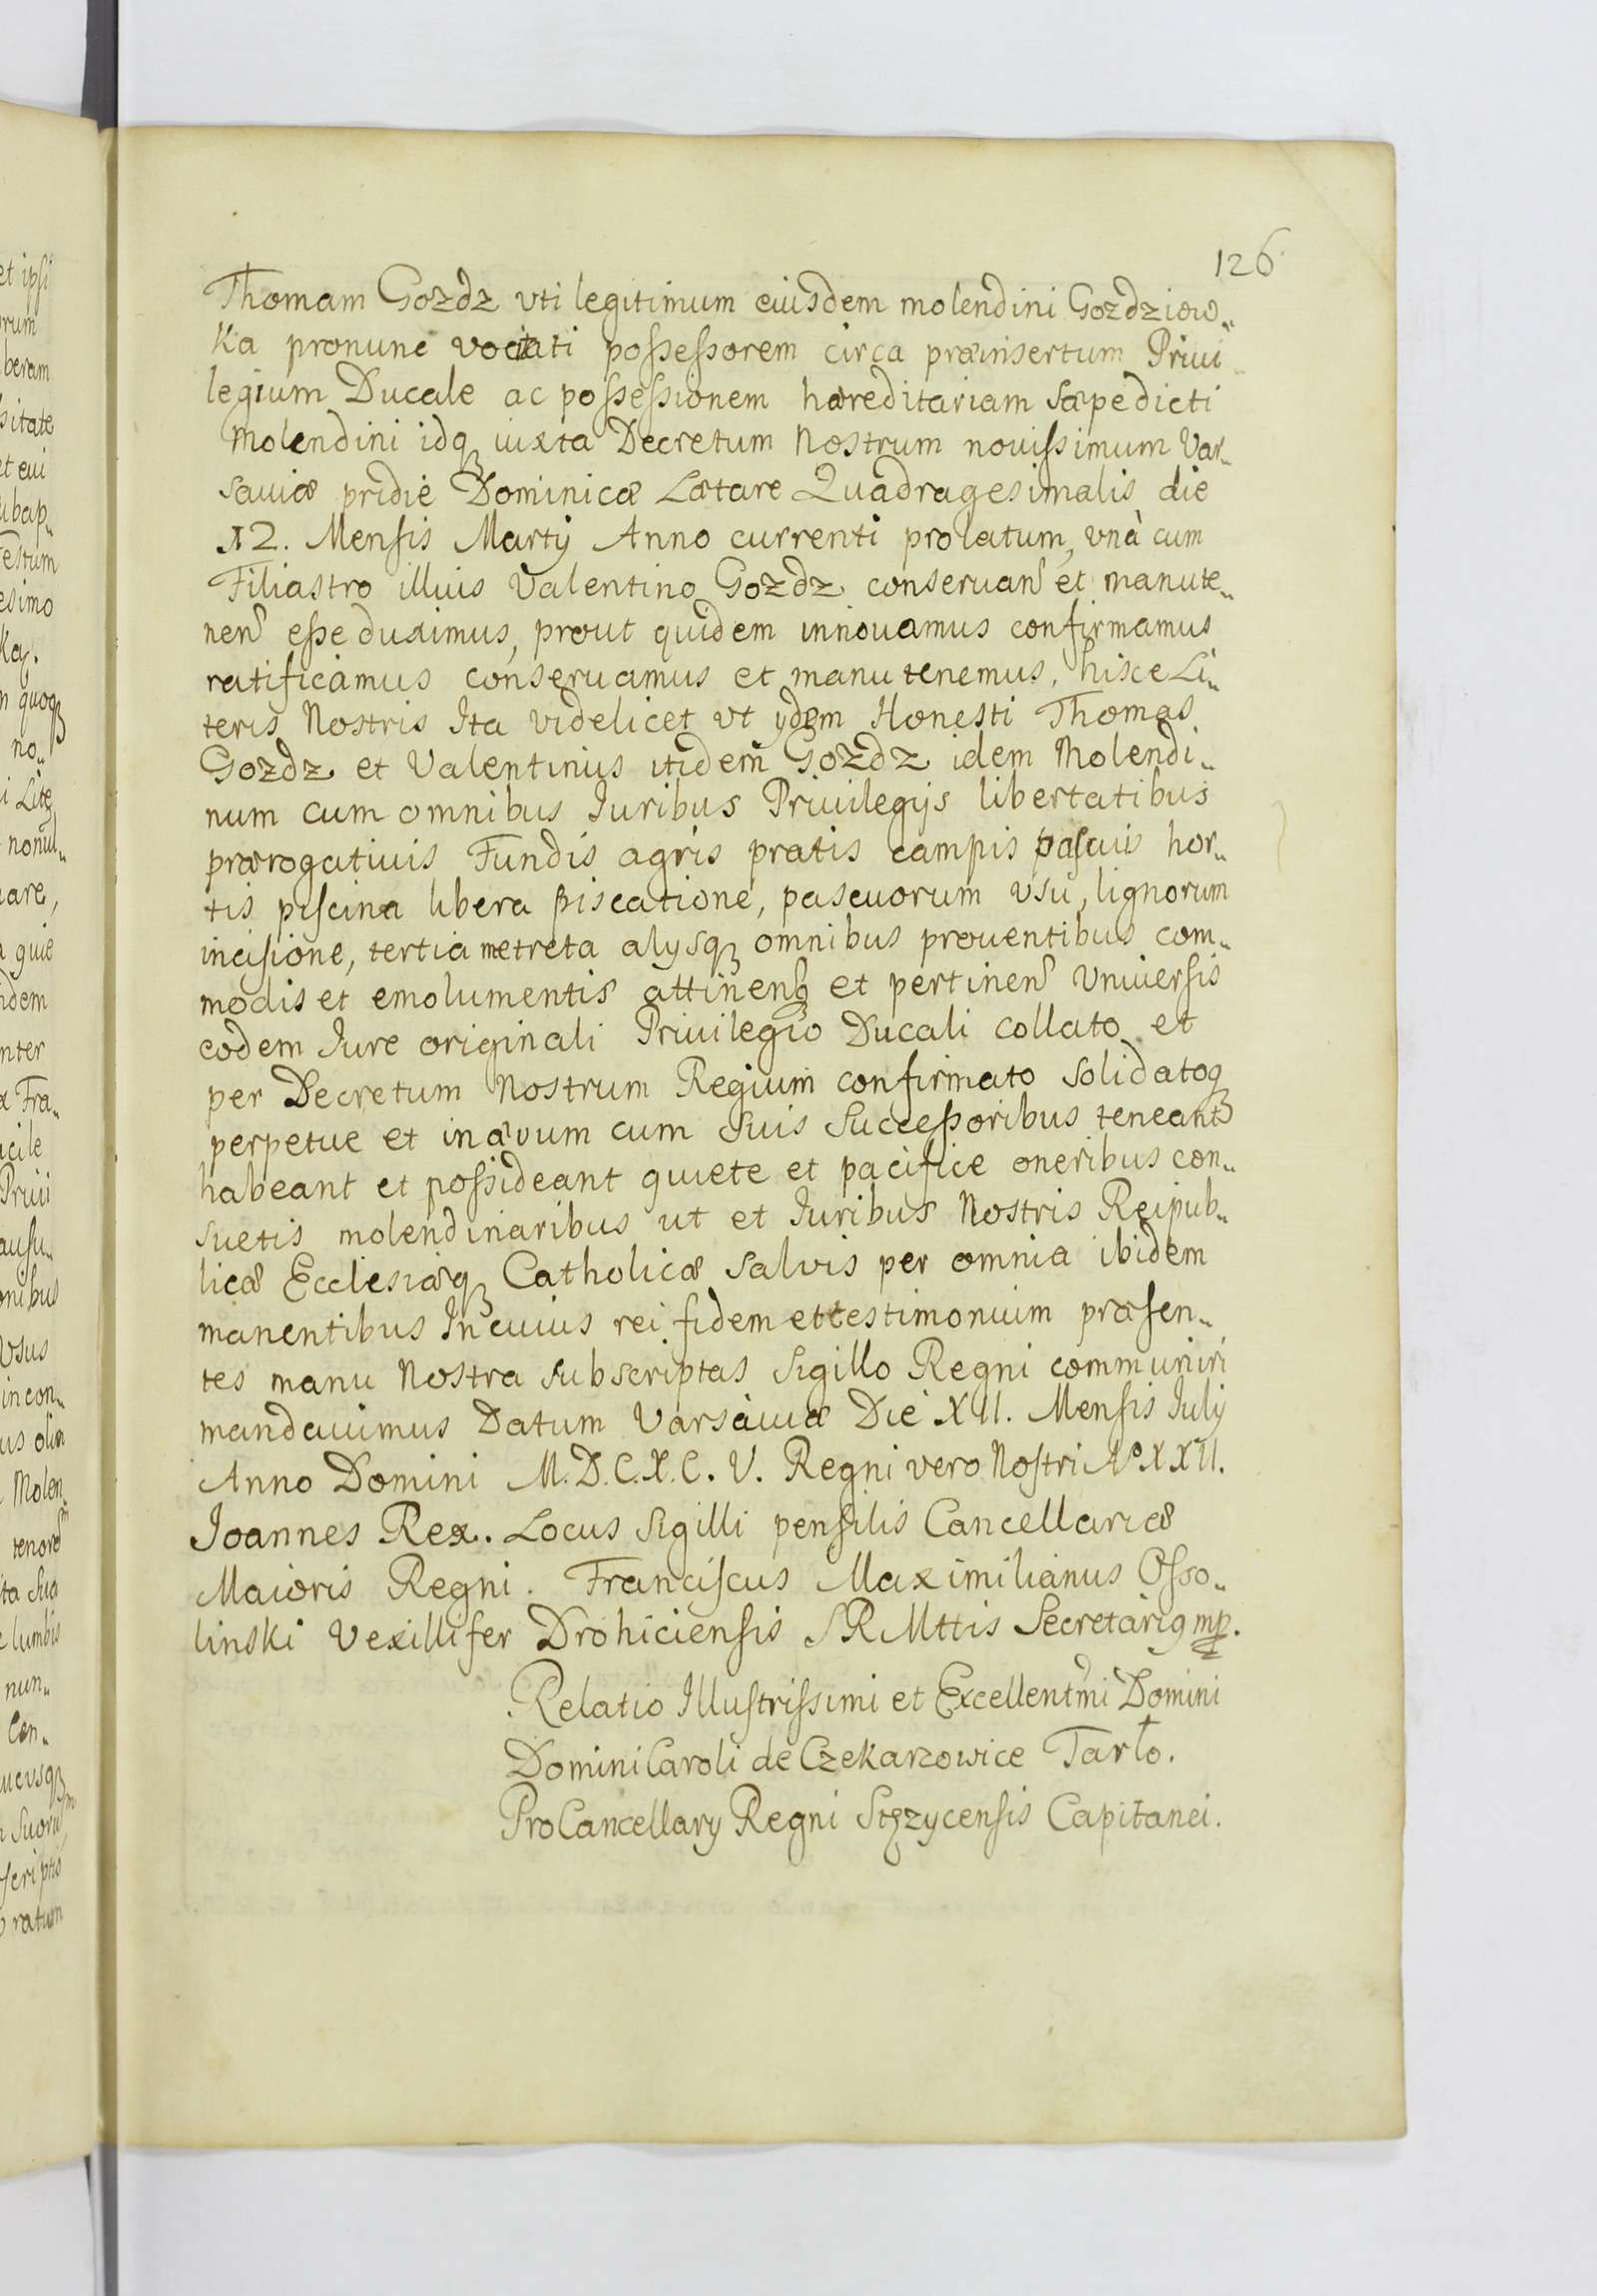 126
Thomam Gozdz vti legitimum eiusdem molendini Gozdziow„
ka pronunc vocitati possessorem circa præinsertum Priui
legium Ducale ac possessionem hæreditariam sæpedicti
molendini idq iuxta Decretum Nostrum nouissimum Var„
sauiæ pridie Dominicæ Lætare Quadragesimalis die
12. Mensis Martij Anno currenti prolatum, vnà cum
Filiastro illius Valentino Gozdz conseruan et manute„
nen esse duximus, prout quidem innouamus confirmamus
ratificamus conseruamus et manutenemus, hisce Li„
teris Nostris Ita videlicet vt ydem Honesti Thomas
Gozdz et Valentinus itidem Gozdz idem Molendi„
num cum omnibus Iuribus Priuilegijs libertatibus
prærogatiuis Fundis agris pratis campis pascuis hor„
tis piscina libera piscatione, pascuorum vsu, lignorum
incisione, tertia metreta alysq omnibus prouentibus com„
modis et emolumentis attinen et pertinen Vniuersis
eodem Iure originali Priuilegio Ducali collato et
per Decretum Nostrum Regium confirmato solidatoq
perpetue et inævum cum suis Successoribus teneant
habeant et possideant quiete et pacifice oneribus con„
suetis molendinaribus ut et Iuribus Nostris Reipub„
licæ Ecclesiæq Catholicæ salvis per omnia ibidem
manentibus In cuius rei fidem et testimonium præsen„
tes manu Nostra subscriptas Sigillo Regni communiri
mandauimus Datum Varsauiæ Die XII. Mensis Iulij
Anno Domini M.D.C.X.C.V. Regni vero Nostri Aº XXII.
Joannes Rex. Locus Sigilli pensilis Cancellariæ
Maioris Regni. Franciscus Maximilianus Osso„
linski Vexillifer Drohiciensis S R Mttis Secretarig mp.
Relatio Illustrissimi et Excellentmi Domini
Domini Caroli de Czekarzowice Tarło.
ProCancellary Regni Stęzycensis Capitanei.